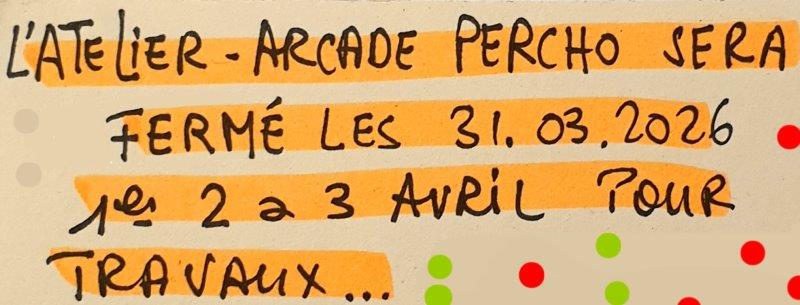 L'ATELIER - ARCADE PERCHO SERA
FERMÉ LES 31.03.2026
1er 2 a 3 AVRIL POUR
TRAVAUX...